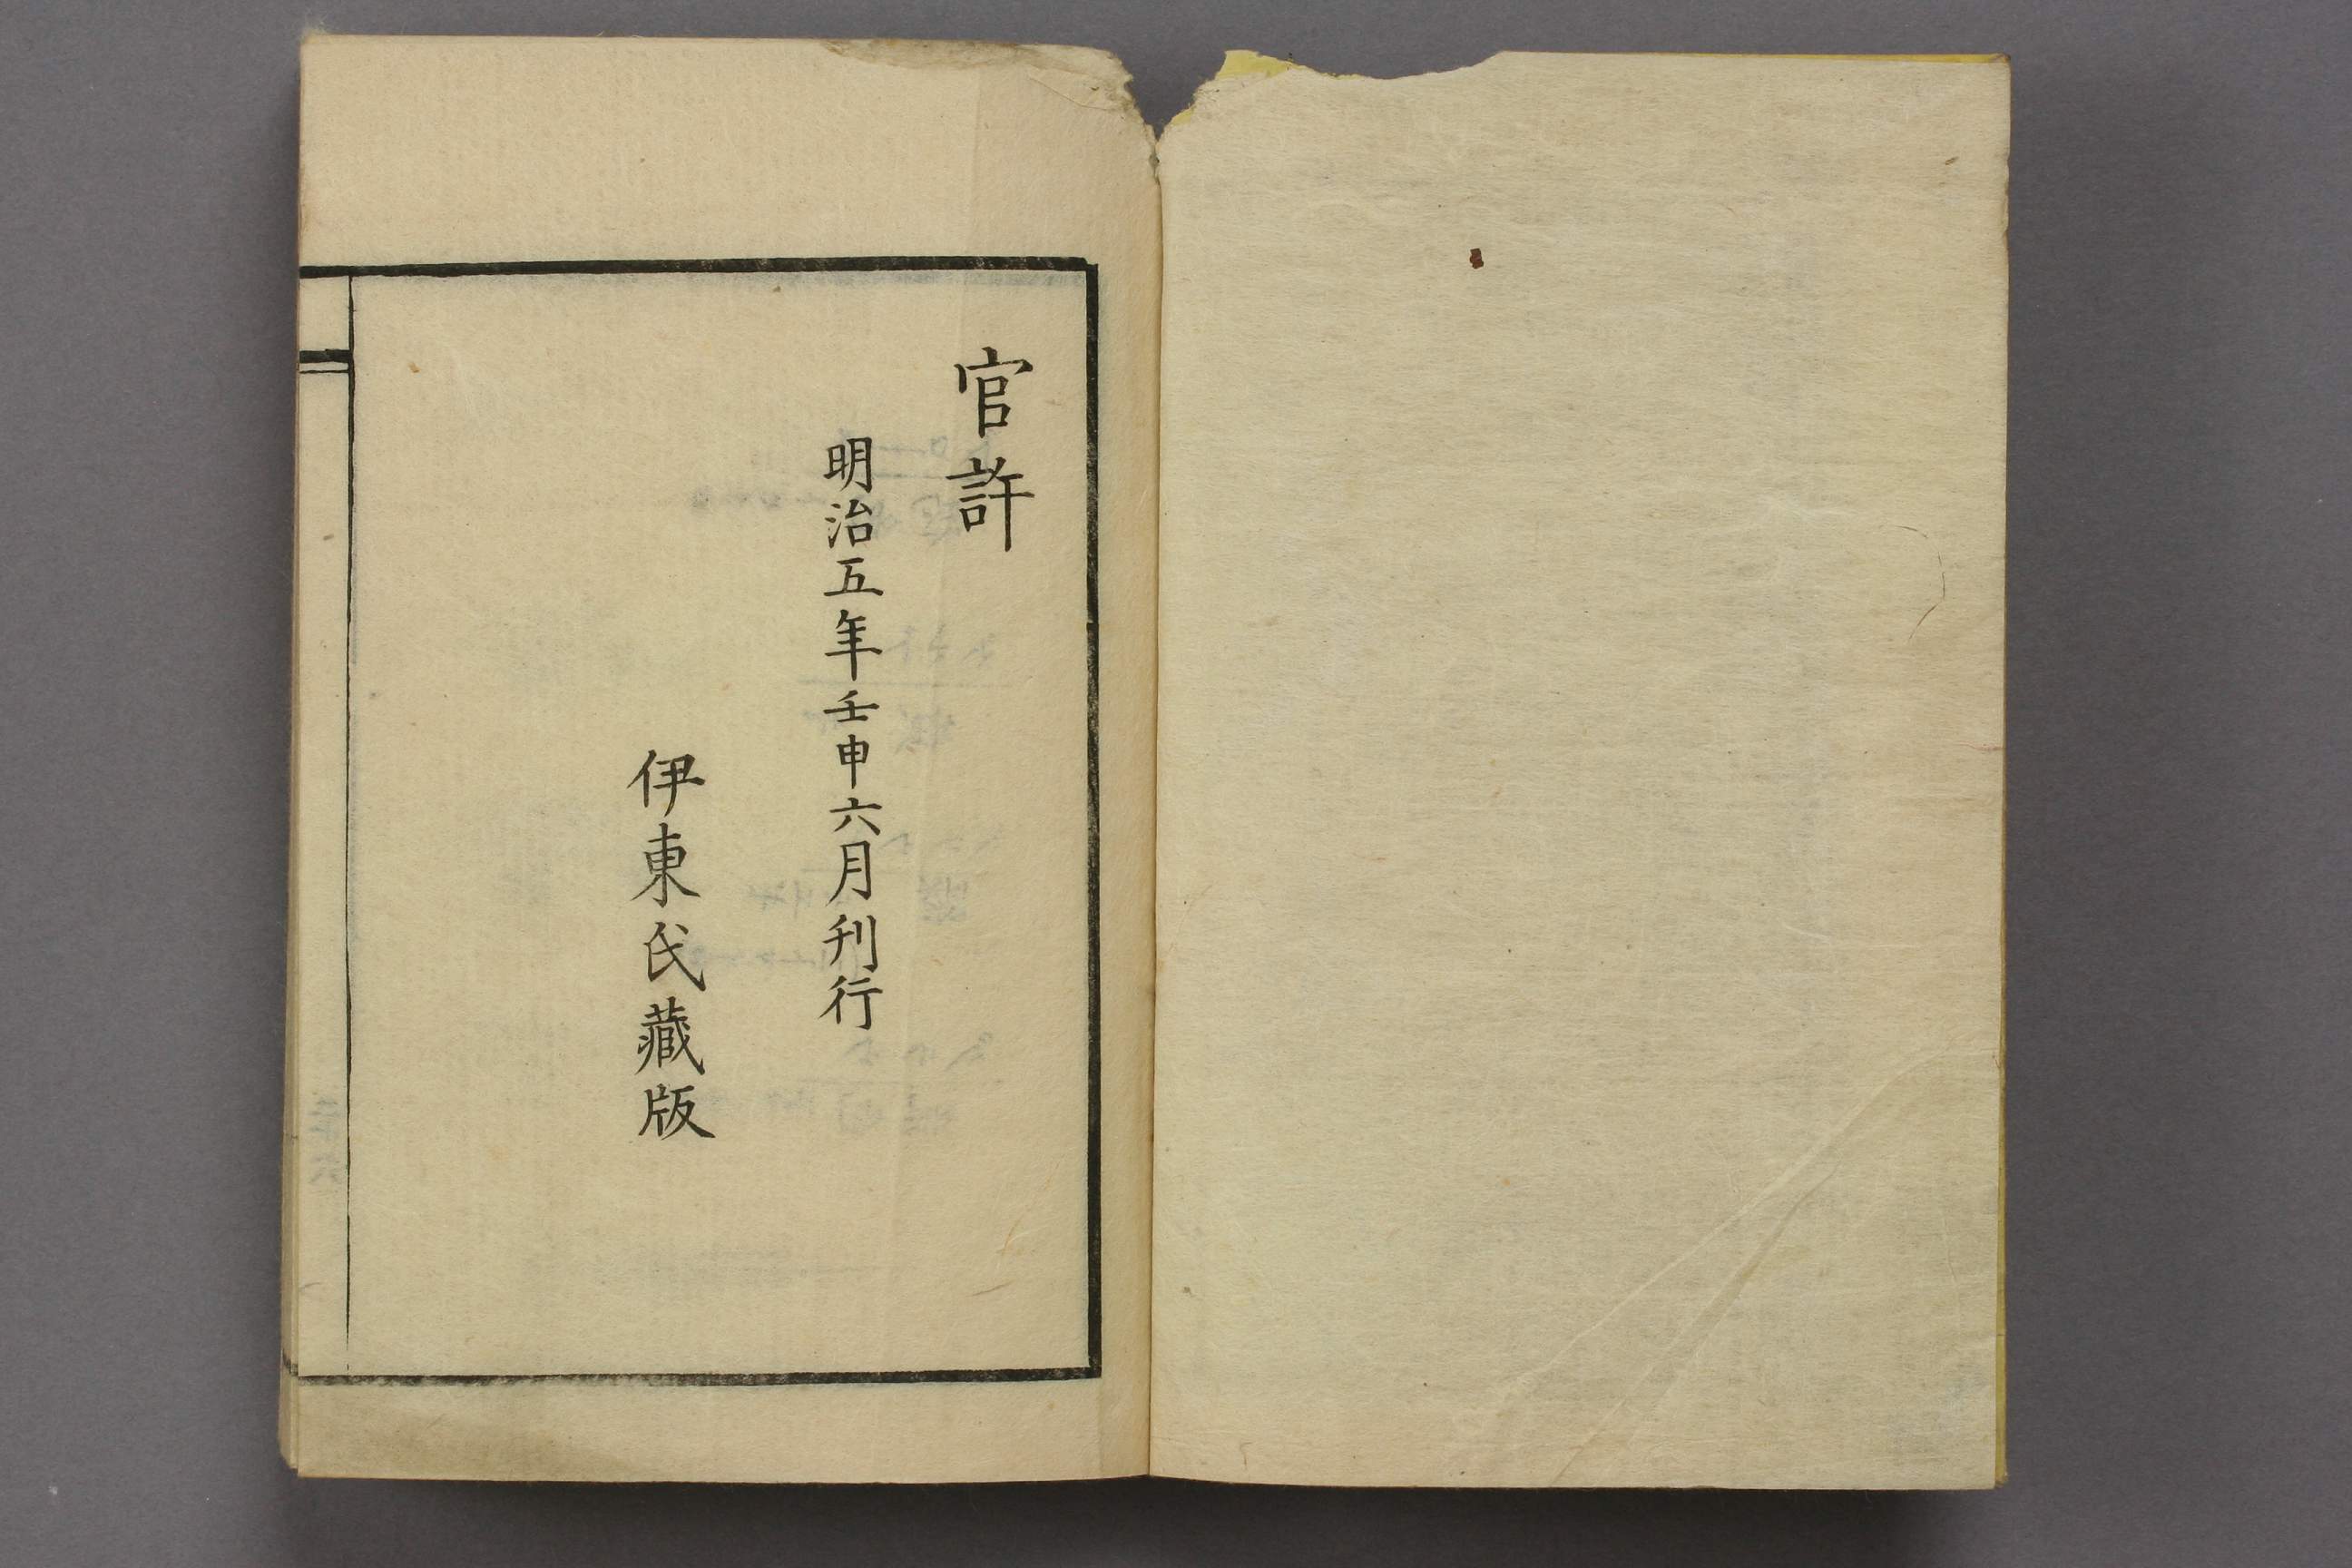 官許
明治五年壬申六月刋行
伊東氏藏版